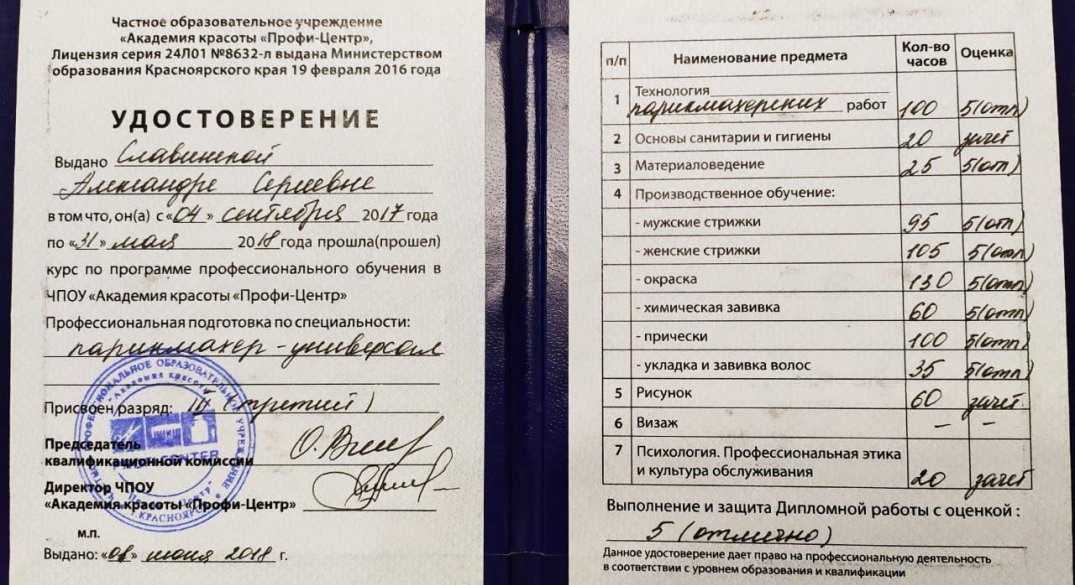 Частное образовательное учреждение
«Академия красоты «Профи-Центр»,
Лицензия серия 24Л01 №8632-л выдана Министерством
образования Красноярского края 19 февраля 2016 года
УДОСТОВЕРЕНИЕ
Выдано Славинской
Александре Сергеевне
в том что, он(а) с «04» сентября 2017 года
по «31» мая 2018 года прошла(прошел)
курс по программе профессионального обучения в
ЧПОУ «Академия красоты «Профи-Центр»
Профессиональная подготовка по специальности:
парикмахер-универсал
Присвоен разряд: III (третий)
Председатель
квалификационной комиссии
Директор ЧПОУ
«Академия красоты «Профи-Центр»
м.п.
Выдано: «01» июня 2018 г.
п/п Наименование предмета Кол-во часов Оценка
1 Технология парикмахерских работ 100 5(отл)
2 Основы санитарии и гигиены 20 зачёт
3 Материаловедение 25 5(отл)
4 Производственное обучение:
- мужские стрижки 95 5(отл)
- женские стрижки 105 5(отл)
- окраска 130 5(отл)
- химическая завивка 60 5(отл)
- прически 100 5(отл)
- укладка и завивка волос 35 5(отл)
5 Рисунок 60 зачёт
6 Визаж – –
7 Психология. Профессиональная этика
и культура обслуживания 20 зачёт
Выполнение и защита Дипломной работы с оценкой :
5 (отлично)
Данное удостоверение дает право на профессиональную деятельность
в соответствии с уровнем образования и квалификации